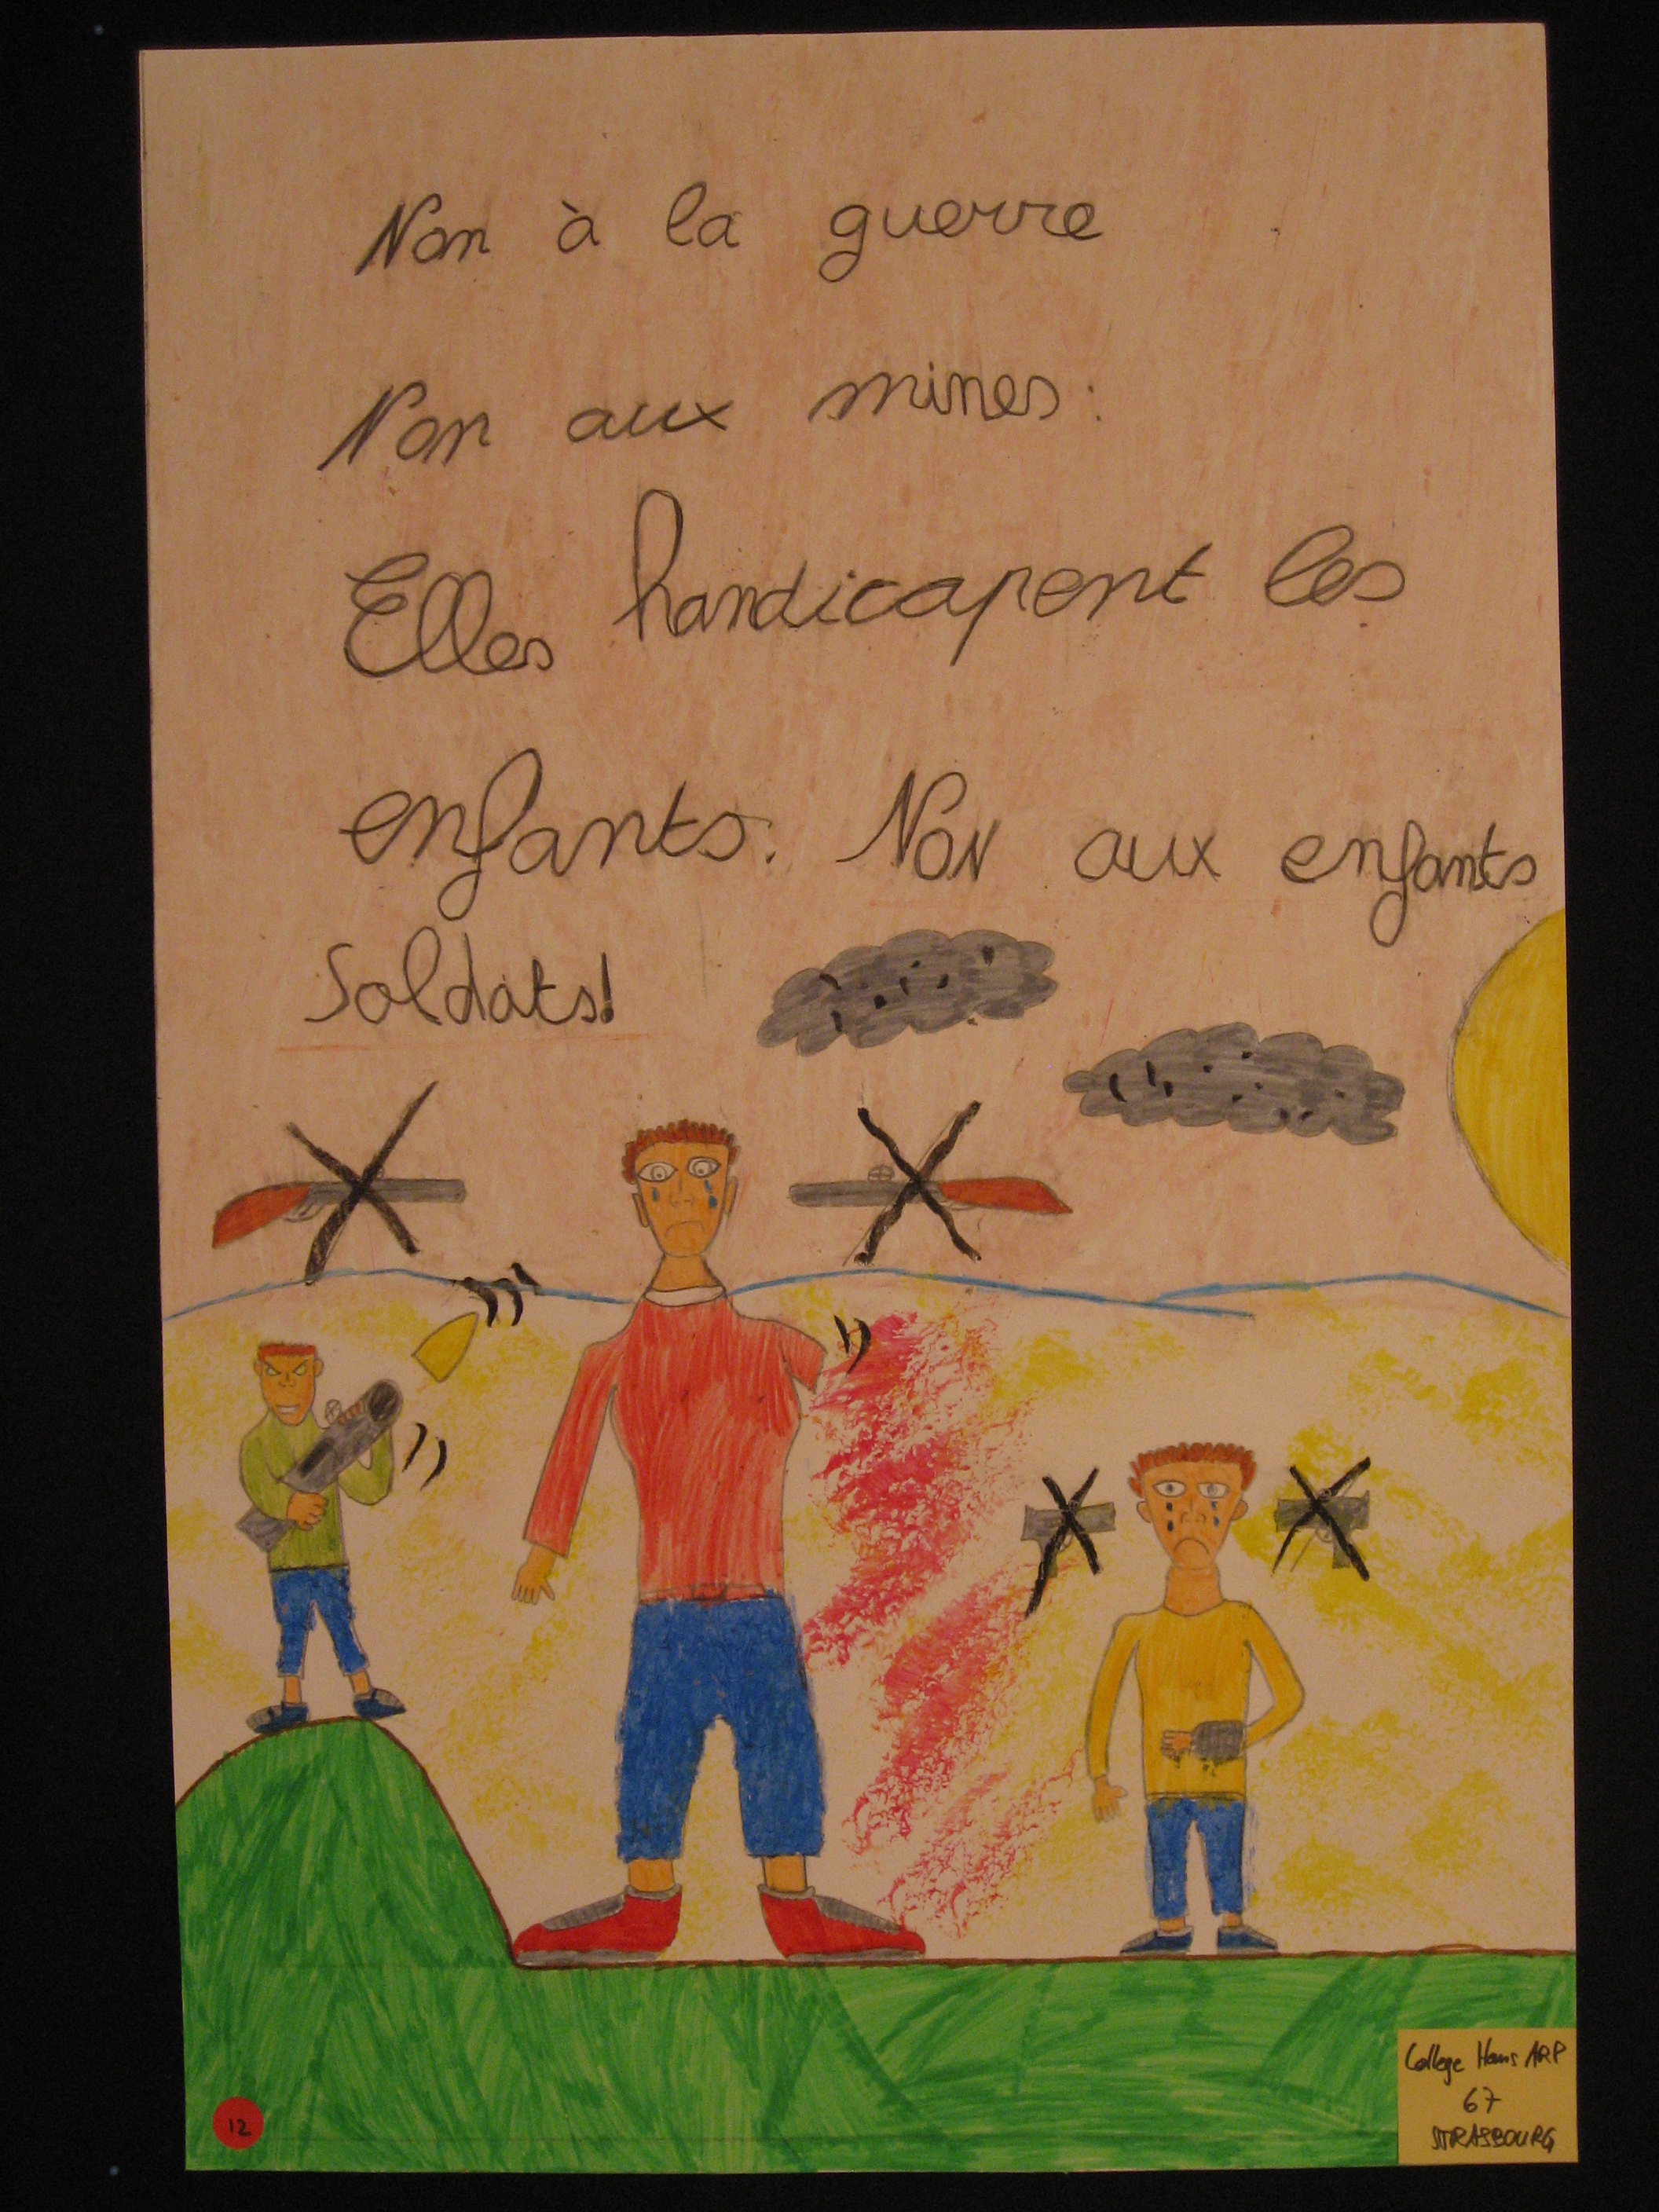 Non à la guerre
Non aux mines :
Elles handicapent les
enfants. Non aux enfants
Soldats!
College Hans ARP
67
STRASBOURG
12